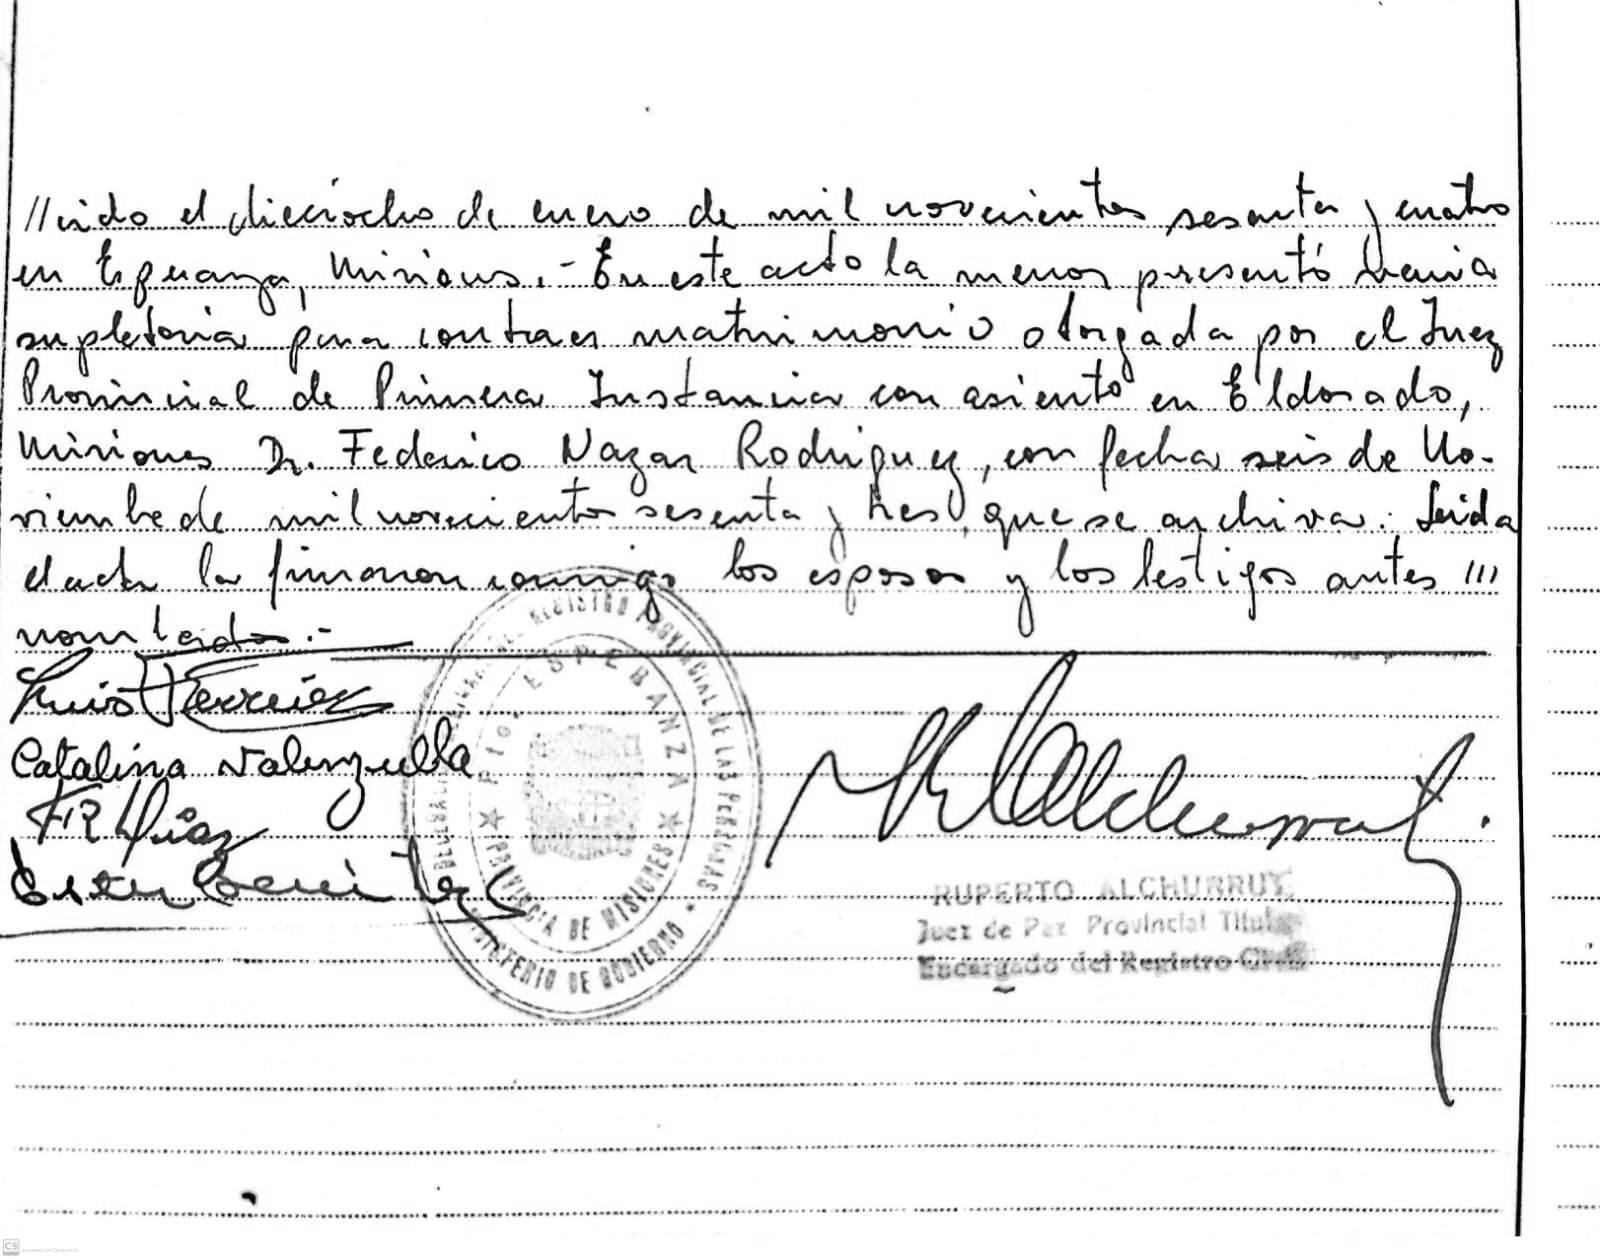 //cido el dieciocho de enero de mil novecientos sesenta y cuatro
en Esperanza, Misiones.- En este acto la menor presentó venia
supletoria para contraer matrimonio otorgada por el Juez
Provincial de Primera Instancia con asiento en Eldorado,
Misiones Dr. Federico Nazar Rodriguez, con fecha seis de No-
viembre de mil novecientos sesenta y tres, que se archiva. Leida
el acta la firmaron conmigo los esposos y los testigos antes ///
nombrados.-
Luis Ferreira
Catalina Valenzuella
FR Diaz
REGISTRO PROVINCIAL DE LAS PERSONAS
Pto. ESPERANZA
PROVINCIA DE MISIONES
MINISTERIO DE GOBIERNO
RUPERTO ALCHURRUT
Juez de Paz Provincial Titular
Encargado del Registro Civil
CS